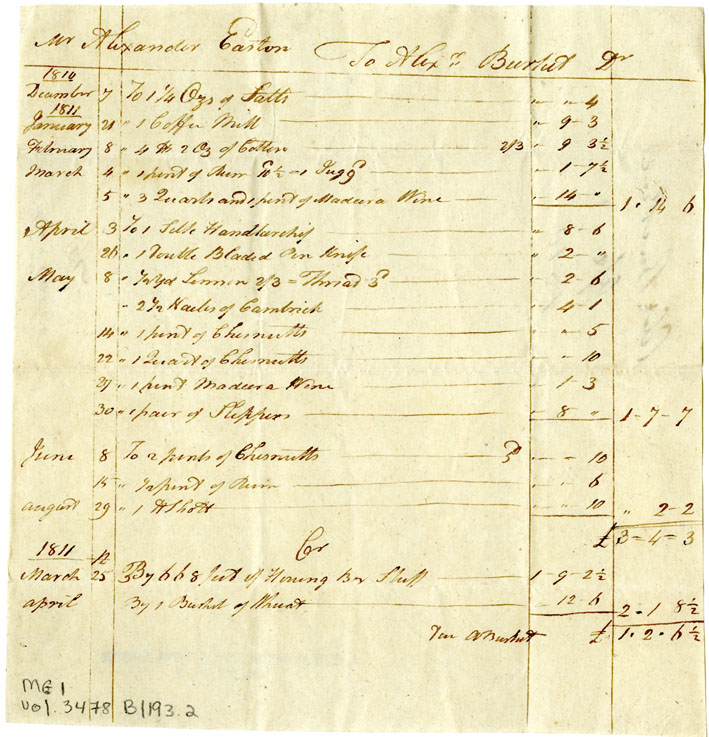 Mr Alexander Easton To Alexr. Burket Dr
1810
December 7 To 1 1/4 Ozs of Salts " " 4
1811
January 21 " 1 Coffee Mill " 9 - 3
February 8 " 4 lb 2 Oz of Cotton 2/3 " 9 3 1/2
March 4 " 1 pint of Rum 10 1/2 - 1 Jug 9d " 1 - 7 1/2
5 " 3 Quarts and 1 pint of Madeira Wine " 14 - " 1 " 14 6
April 3 To 1 Silk Handkarchif " 8 - 6
26 " 1 Double Bladed Pen Knife " 2 - "
May 8 " 1/2 yd Linnen 2/3 = Thread 3d " 2 - 6
" 2 1/2 Nailes of Cambrick " 4 - 1
14 " 1 pint of Chesnutts " " 5
22 " 1 Quart of Chesnutts " - 10
27 " 1 pint Madeira Wine " 1 - 3
30 " 1 pair of Slippers " 8 " 1 - 7 - 7
June 8 To 2 pints of Chesnutts 5d " - 10
15 " 1/2 pint of Rum " " 6
august 29 " 1 lb Shott " " 10 " 2 - 2
£ 3 = 4 = 3
1811 Cr
March 25 By 668 feet of Box Stuff 1 - 9 - 2 1/2
April By 1 Bushel of Wheat " 12 - 6 2 " 1 8 1/2
A Burket £ 1 " 2 " 6 1/2
MG 1
vol. 3478 B/193.2